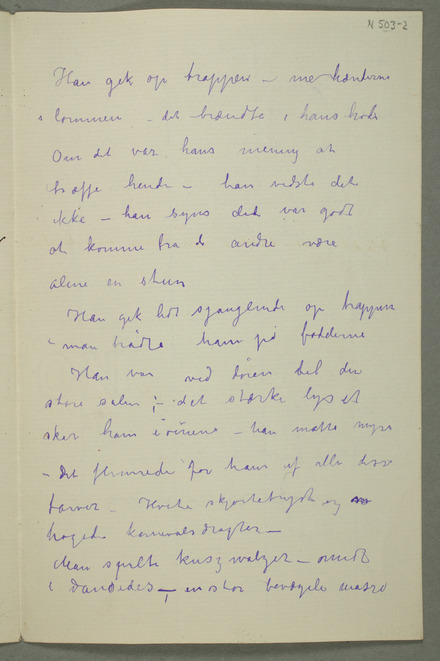 N 503-2
Han gik op trappen – med hænderne
i lommen – det brændte i hans hode
Om det var hans mening at
træffe hende – han vidste det
ikke – han syns det var godt
at komme fra de andre være
alene en stun
Han gik lidt sjanglende op trappen
– man trådte ham på fødderne
Han var ved døren til den
store salen ; – det stærke lys
skar ham i øinene – han måtte myse
– det flimrede for ham af alle disse
farver – Hvide skjortebryst og
brogede karnevalsdragter –
Man spilte valzer –
dandsedes –, en stor bevægelig masse